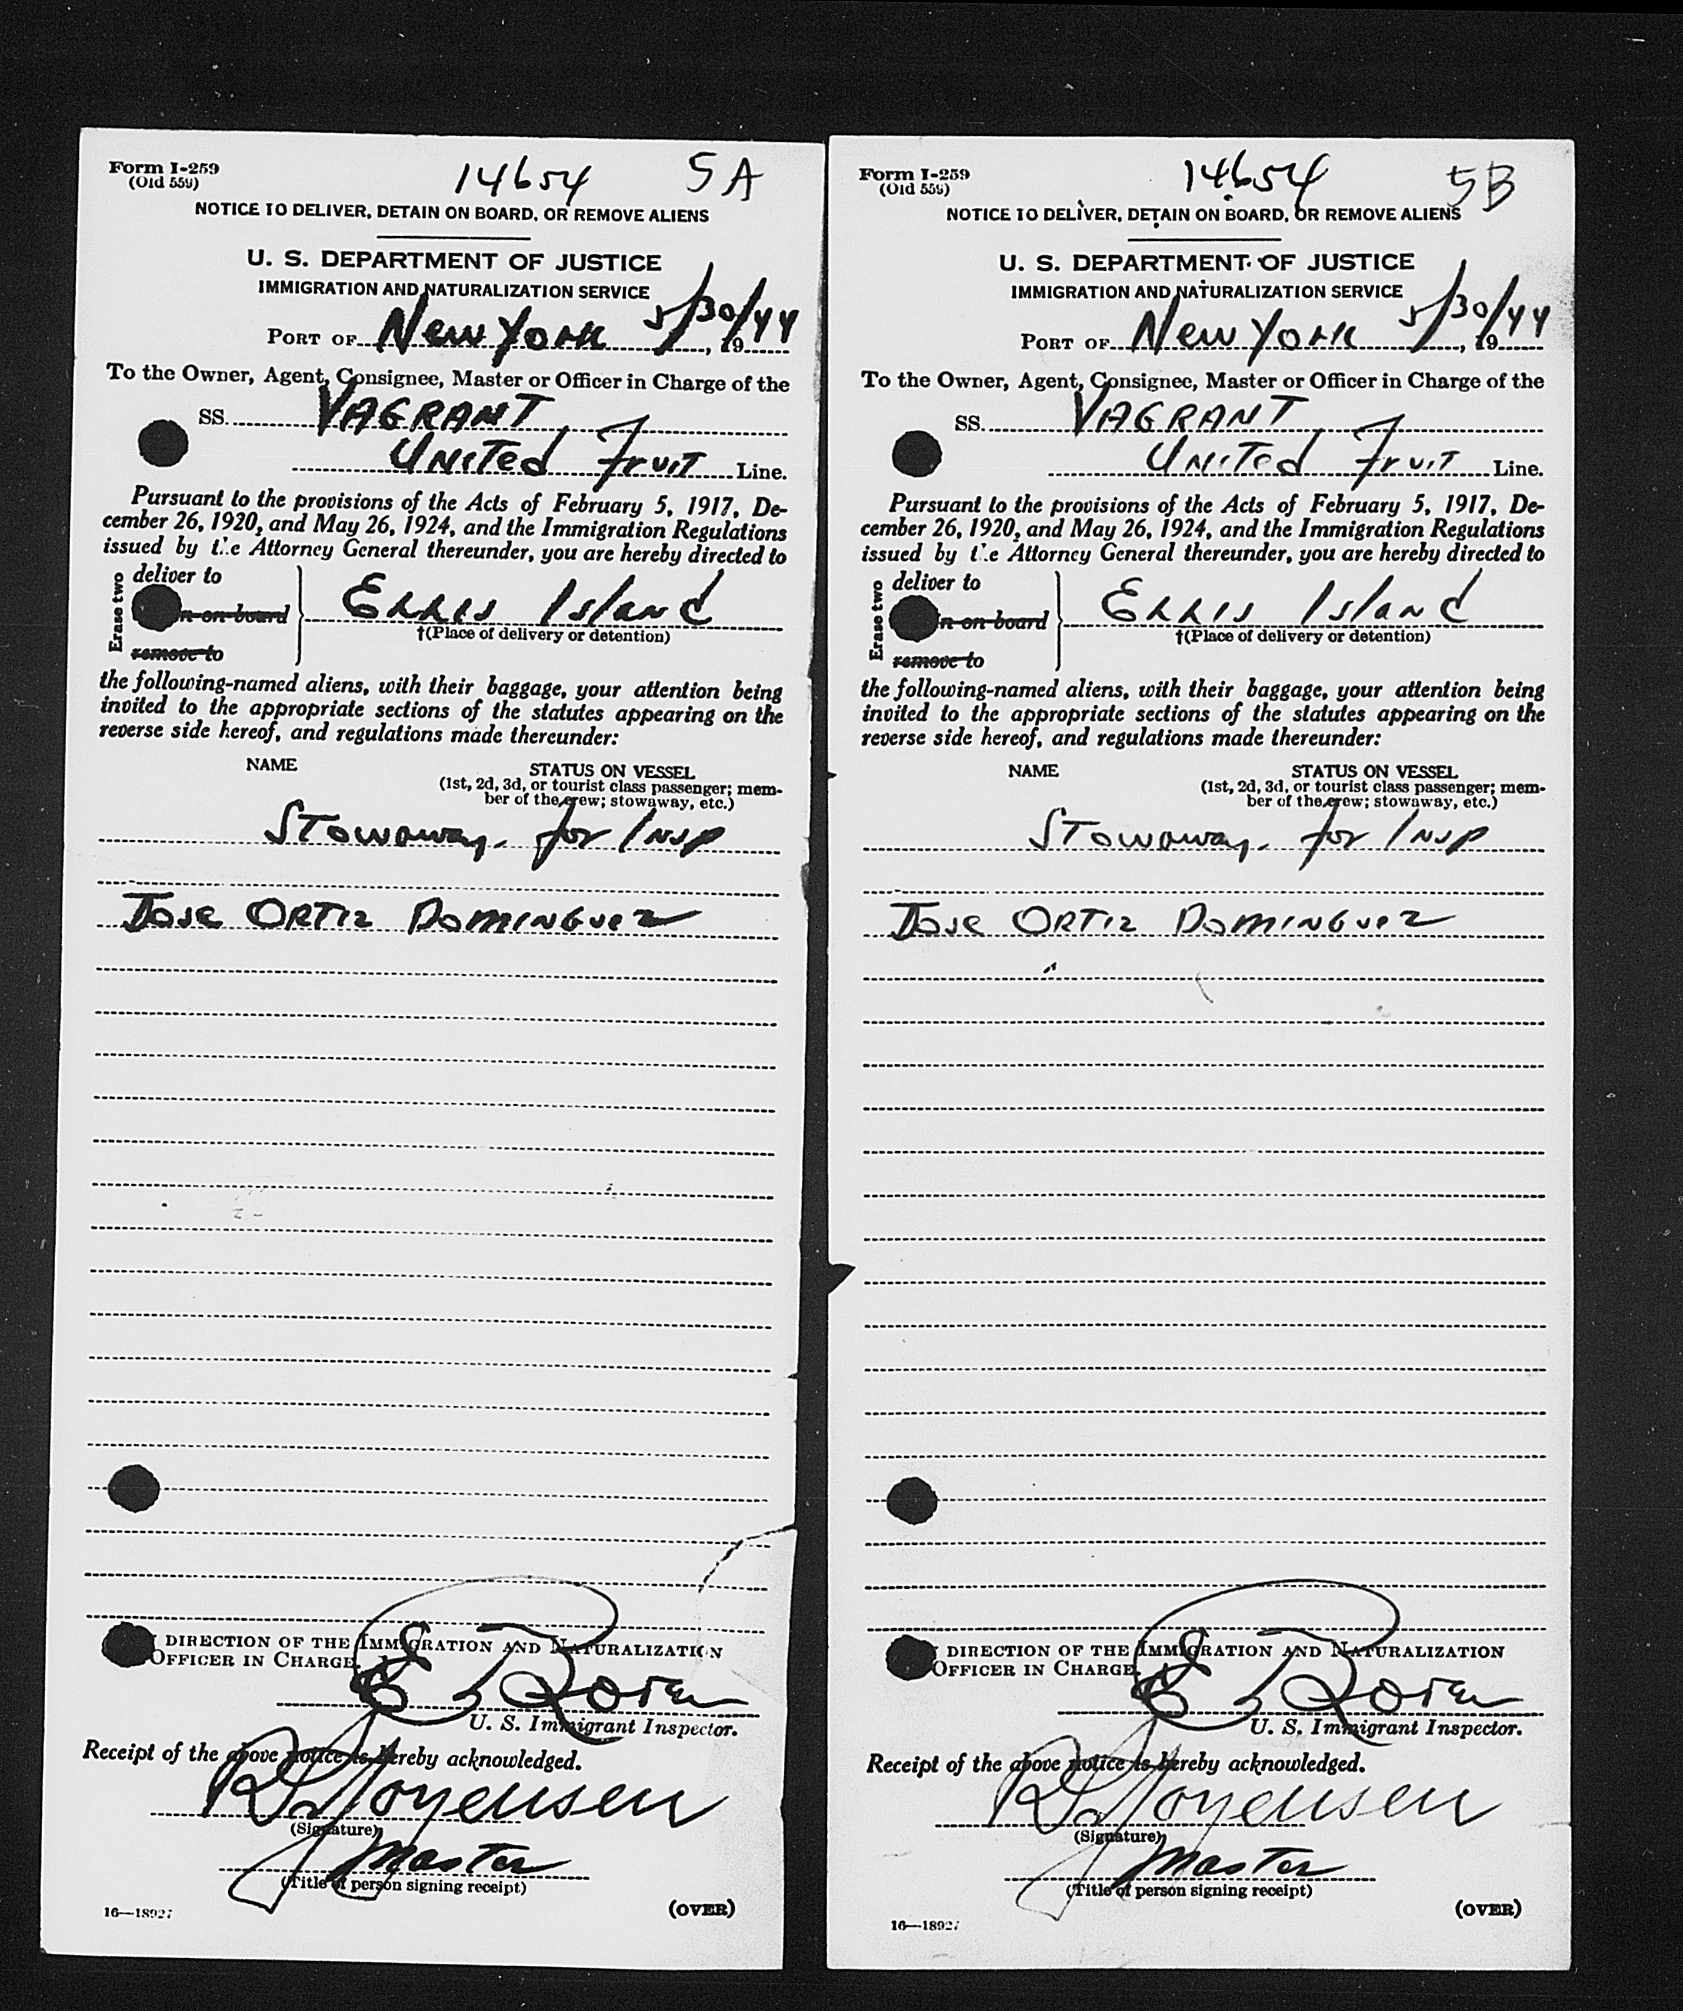 Form I-259
(Old 559)
14654 5A
NOTICE TO DELIVER, DETAIN ON BOARD, OR REMOVE ALIENS
U. S. DEPARTMENT OF JUSTICE
IMMIGRATION AND NATURALIZATION SERVICE
PORT OF New York 5/30/44, 19
To the Owner, Agent, Consignee, Master or Officer in Charge of the
SS. VAGRANT
United Fruit Line.
Pursuant to the provisions of the Acts of February 5, 1917, De-
cember 26, 1920, and May 26, 1924, and the Immigration Regulations
issued by the Attorney General thereunder, you are hereby directed to
Erase two
deliver to
n on board
remove to
Ellis Island
†(Place of delivery or detention)
the following-named aliens, with their baggage, your attention being
invited to the appropriate sections of the statutes appearing on the
reverse side hereof, and regulations made thereunder:
NAME STATUS ON VESSEL
(1st, 2d, 3d, or tourist class passenger; mem-
ber of the crew; stowaway, etc.)
Stowaway. for Insp
Jose Ortiz Dominguez
DIRECTION OF THE IMMIGRATION AND NATURALIZATION
OFFICER IN CHARGE.
U. S. Immigrant Inspector.
Receipt of the above notice is hereby acknowledged.
Jorgensen
(Signature)
Master
(Title of person signing receipt)
16—18927 (OVER)
Form I-259
(Old 559)
14654 5B
NOTICE TO DELIVER, DETAIN ON BOARD, OR REMOVE ALIENS
U. S. DEPARTMENT OF JUSTICE
IMMIGRATION AND NATURALIZATION SERVICE
PORT OF New York 5/30/44, 19
To the Owner, Agent, Consignee, Master or Officer in Charge of the
SS. VAGRANT
United Fruit Line.
Pursuant to the provisions of the Acts of February 5, 1917, De-
cember 26, 1920, and May 26, 1924, and the Immigration Regulations
issued by the Attorney General thereunder, you are hereby directed to
Erase two
deliver to
n on board
remove to
Ellis Island
†(Place of delivery or detention)
the following-named aliens, with their baggage, your attention being
invited to the appropriate sections of the statutes appearing on the
reverse side hereof, and regulations made thereunder:
NAME STATUS ON VESSEL
(1st, 2d, 3d, or tourist class passenger; mem-
ber of the crew; stowaway, etc.)
Stowaway. for Insp
Jose Ortiz Dominguez
DIRECTION OF THE IMMIGRATION AND NATURALIZATION
OFFICER IN CHARGE.
U. S. Immigrant Inspector.
Receipt of the above notice is hereby acknowledged.
Jorgensen
(Signature)
Master
(Title of person signing receipt)
16—18927 (OVER)